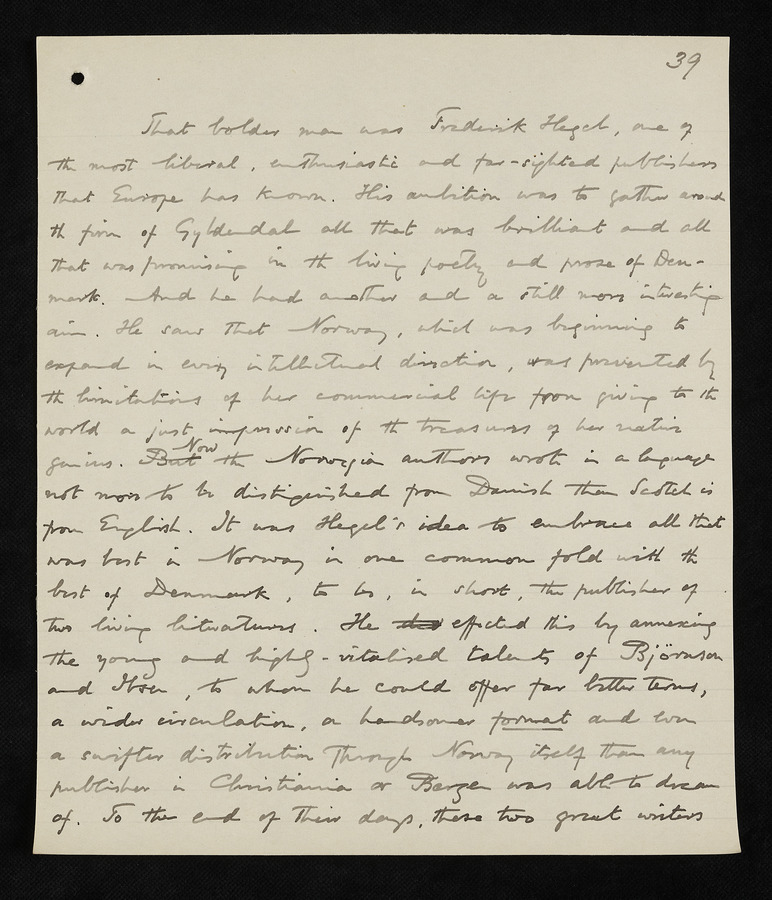 39
That bolder man was Frederik Hegel, one of
the most liberal, enthusiastic and far-sighted publishers
that Europe has known. His ambition was to gather around
the firm of Gyldendal all that was brilliant and all
that was promising in the living poetry and prose of Den-
mark. And he had another and a still more interesting
aim. He saw that Norway, which was beginning to
expand in every intellectual direction, was prevented by
the limitations of her commercial life from giving to the
world a just impression of the treasures of her native
Now
genius. But the Norwegian authors wrote in a language
not more to be distinguished from Danish than Scotch is
from English. It was Hegel's idea to embrace all that
was best in Norway in one common fold with the
best of Denmark, to be, in short, the publisher of
two living literatures. He effected this by annexing
the young and highly-vitalised talents of Björnson
and Ibsen, to whom he could offer far better terms,
a wider circulation, a handsomer format and even
a swifter distribution through Norway itself than any
publisher in Christiania or Bergen was able to dream
of. To the end of their days, these two great writers